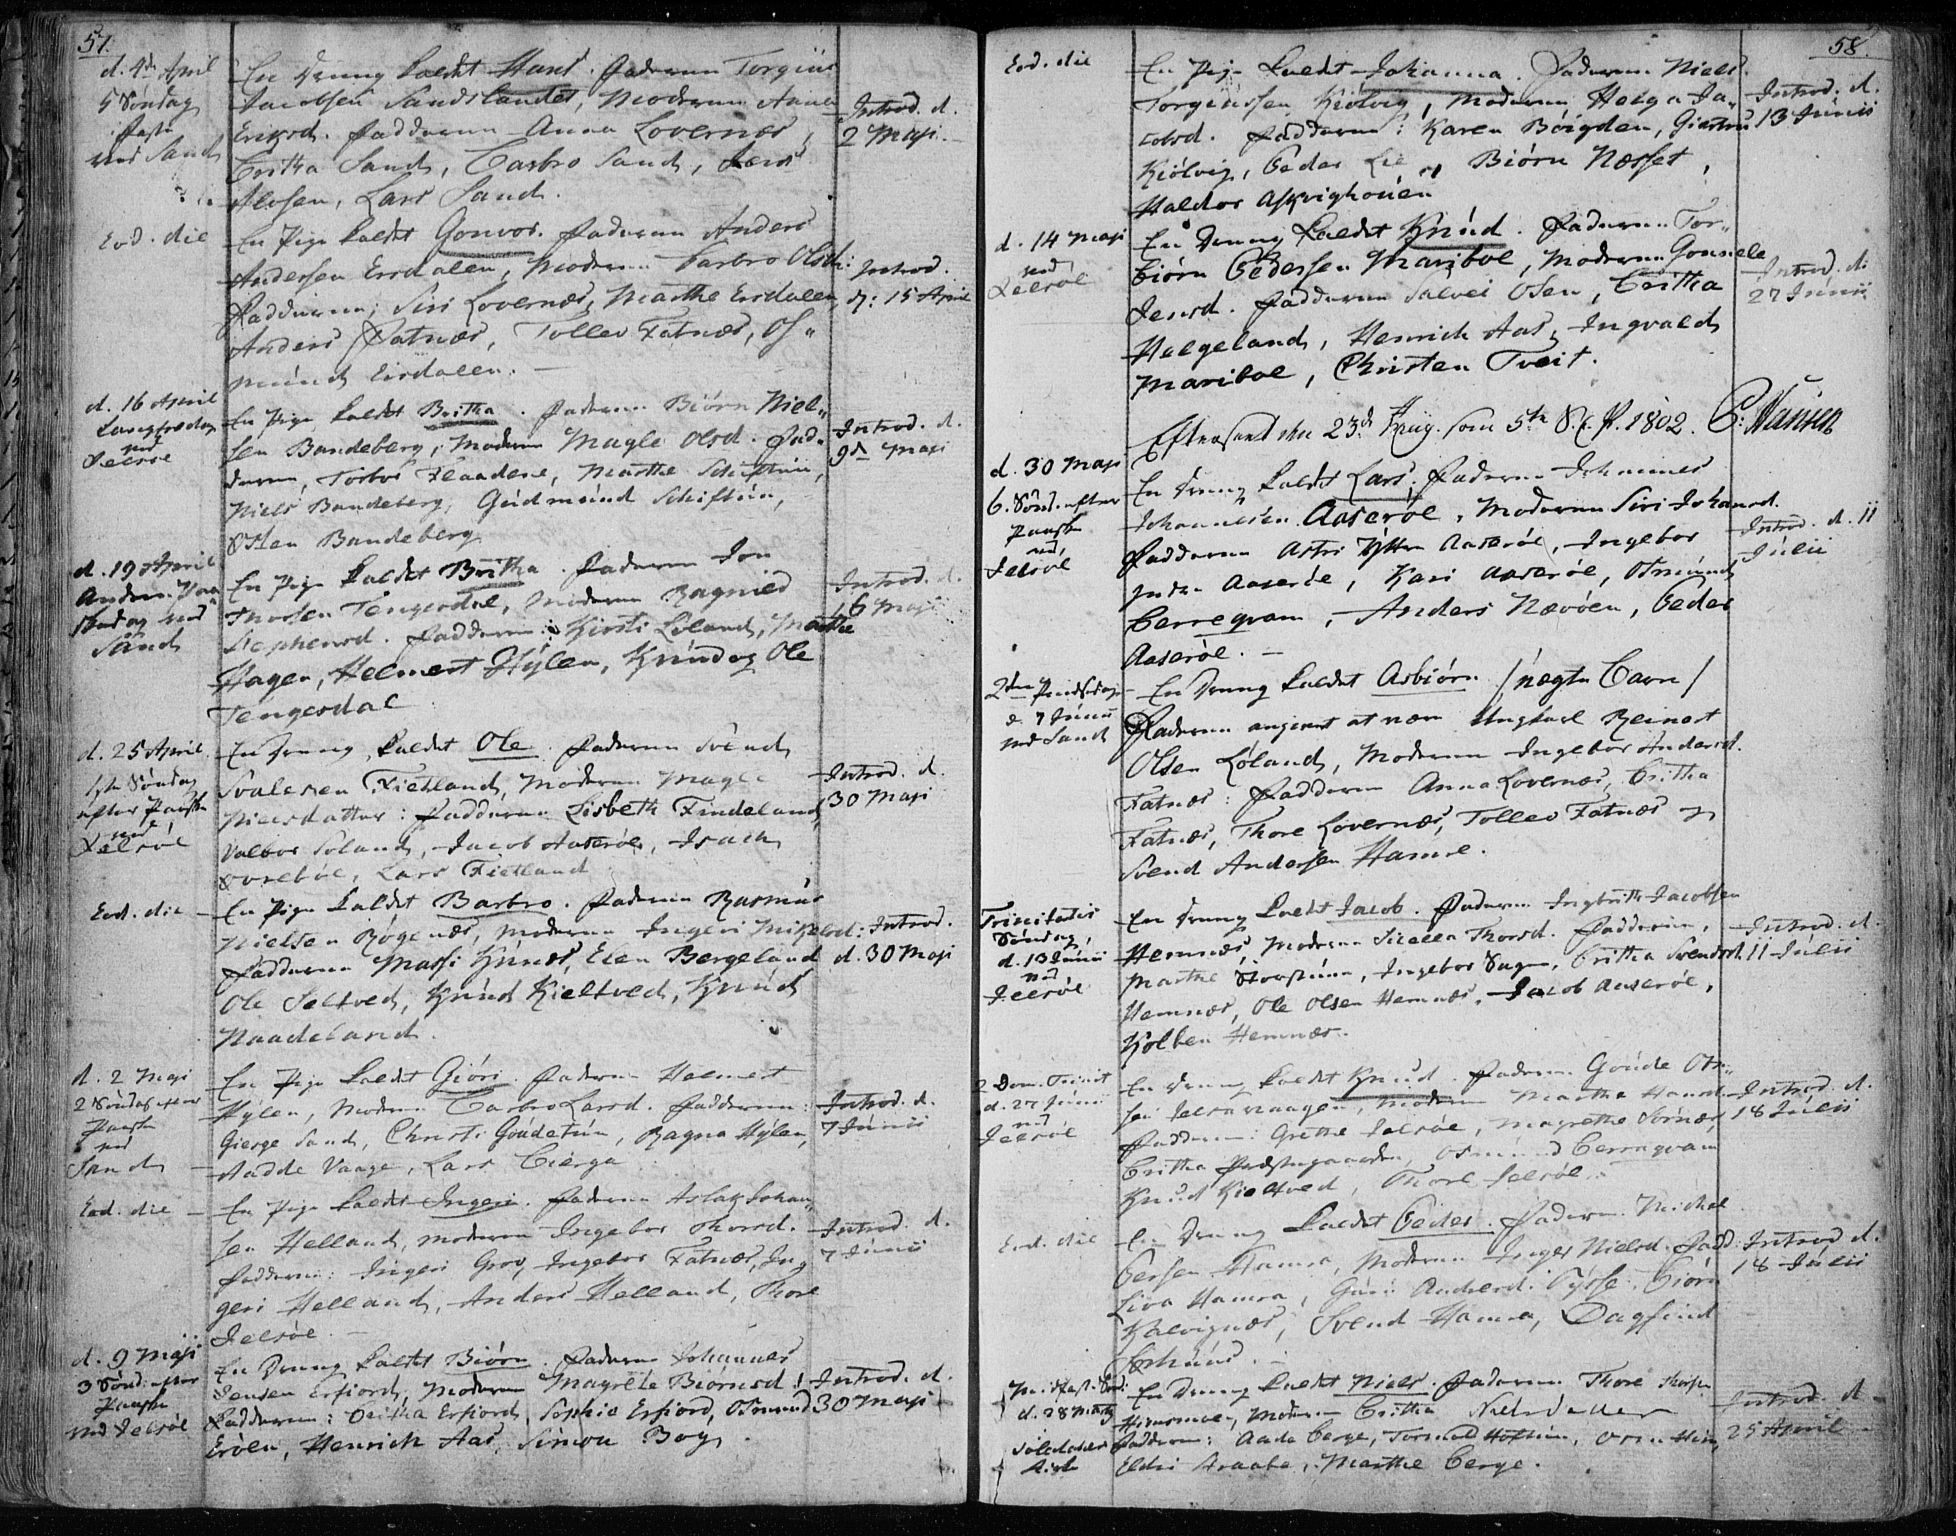 57.
d. 4de April
5 Søndag
Faste
ved Sand
En Dreng kaldet Hans. Faderen Torgiùs
Jacobsen Sandslandet, Moderen Anna
Eriksd. Fadderne Anna Lovernæs,
Britha Sand, Barbro Sand, Jens
Alvsen, Lars Sand.
Introd. d.
2 Maji.
Eod. die
En Pige kaldet Gonvor. Faderen Anders
Andersen Eisdalen, Moderen Barbro Olsdr:
Fadderne; Siri Lovernæs, Marthe Eisdalen,
Anders Fatnæs, Tollev Fatnæs, Os-
mùnd Eisdalen.
Introd.
d: 15 April
d. 16 April
Langfredag
ved
Jelsøe
En Pige kaldet Britha. Faderen Biørn Niel-
sen Bandeberg, Moderen Magle Olsd. Fad-
derne, Torbor Flaadene, Marthe Schiftùn,
Niels Bandeberg, Gùdmùnd Schiftùn,
Østen Bandeberg
Introd. d.
9de Maji
d. 19 April
Anden Paa-
skedag ved
Sand
En Pige kaldet Britha. Faderen Jon
Thorsen Tengesdal, Moderen Ragnild
Stephensd. Fadderne: Kirsti Løland, Marthe
Hagen, Helmert Hÿlen, Knùd og Ole
Tengesdal
Introd. d.
16 Maji
d. 25 April
1ste Søndag
efter Paaske
ved
Jelsøe
En Dreng kaldet Ole. Faderen Svend
Svalesen Fietland, Moderen Magle
Nielsdatter: Fadderne Lisbeth Findeland,
Valbor Foland, Jacob Aaserøe, Isach
Ovrebøe, Lars Fietland
Introd. d.
30 Maji
Eod. die
En Pige kaldet Barbro. Faderen Rasmùs
Nielsen Bøgenæs, Moderen Ingeri Mikelsd:
Fadderne Massi Hùnæs, Elen Bergeland
Ole Seltved, Knùd Kieltved, Knùd
Naadeland.
Introd.
d. 30 Maji
d. 2 Maji
2 Søndag efter
Paaske
ved
Sand
En Pige kaldet Giøri. Faderen Helmert
Hÿlen, Moderen Barbro Larsd. Fadderne:
Gierge Sand, Christi Goùdetùn, Ragna Hÿlen,
Aadde Vaage, Lars Bierga
Introd. d.
7 Jùnii
Eod. die
En Pige kaldet Ingeri. Faderen Aslak Johan-
sen Helland, Moderen Ingebor Thorsd.
Fadderne: Ingeri Grov, Ingebor Fatnæs, In-
geri Helland, Anders Helland, Thore
Jelsøe.
Introd. d.
7 Jùnii
d. 9 Maji
3 Sønd: efter
Paaske
ved Jelsøe
En Dreng kaldet Biørn. Faderen Johannes
Jensen Erfiord, Moderen Magrete Biørnsd:
Fadderne: Britha Erfiord, Sophie Erfiord, Osmund
Erøen, Henrich Aas, Simon Bog.
Introd. d.
30 Maji
58.
Eod. die
En Pige kaldet Johanna. Faderen Niels
Torgiùssen Kiølvig, Moderen Helga Ja-
cobsd. Fadderne: Karen Bøigden, Giertrù
Kiølvig, Peder Lie, Biørn Næsset,
Haldor Askvighoùen
Introd. d.
13 Jùnii
d. 14 Maji
ved
Jelsøe
En Dreng kaldet Knùd. Faderen Tor-
biørn Pedersen Mariboe, Moderen Gonnele
Jensd. Fadderne Salvei Osen, Britha
Helgeland, Henrich Aas, Ingvald
Mariboe, Christen Tveit.
Introd. d:
27 Jùnii
Efterseet den 23de Aùg. som 5te S. e. P. 1802. C: Hansen
d. 30 Maji
6. Sønd. efter
Paaske
ved
Jelsøe
En Dreng kaldet Lars, Faderen Johannes
Johannesen Aaserøe, Moderen Siri Johansd.
Fadderne Astri Ytter Aaserøe, Ingebor
Indre Aaserøe, Kari Aaserøe, Osmùnd
Berreqvam, Anders Nævøen, Peder
Aaserøe.
Introd. d. 11
Jùlii
2den Pindsedag
d. 7 Jùnii
ved Sand
En Dreng kaldet Asbiørn /ùægte Barn/
Faderen angivet at være Ungkarl Reinert
Olsen Løland, Moderen Ingebor Andersd.
Fatnæs: Fadderne Anna Lovernæs, Britha
Fatnæs, Thore Lovernæs, Tollev Fatnæs og
Svend Andersen Hamre.
Trinitatis
Søndag
d. 13 Jùnii
ved
Jelsøe
En Dreng kaldet Jacob. Faderen Ingbrith Jacobsen
Hemnæs, Moderen Sicella Thorsd. Fadderne,
Marthe Hovstùnn, Ingebor Vage, Britha Svendsd.
Hemnæs, Ole Olsen Hemnæs, Jacob Aaserøe,
Kolben Hemnæs.
Introd. d.
11 Jùlii
2 Dom. Trinit
d. 27 Jùnii
ved
Jelsøe
En Dreng kaldet Knùd. Faderen Goùde Os-
sen Jelsavaagen, Moderen Martha Hansd.
Fadderne: Grethe Jelsøe, Magrethe Sornæs,
Britha Præstegaarden, Osmùnd Berreqvam
Knùd Kieltved, Thore Jelsøe.
Introd. d.
18 Jùlii
Eod. die
En Dreng kaldet Peder. Faderen Michel
Persen Hamra, Moderen Inger Nielsd. Fadd:
Liva Hamra, Gùri Andersd. Tÿsse, Biørn
Kalvignæs, Svend Hamra, Dagfind
Introd. d.
18 Jùlii
Midfaste Sønd:
d. 28 Martz
En Dreng kaldet Niels. Faderen Thore
Moderen Britha Nielsdatter
Fadderne: Aade Berge,
Eldri Straabø, Marthe Berge.
Introd. d.
25 April